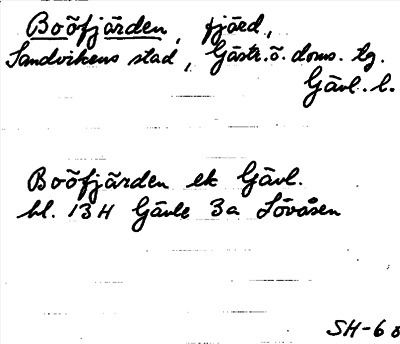 Boofjärden, fjärd,
Sandvikens stad, Gästr. ö. doms. tg.
Gävl. l.
Boofjärden ek Gävl.
bl. 13H Gävle 3a Lövåsen
SH-68